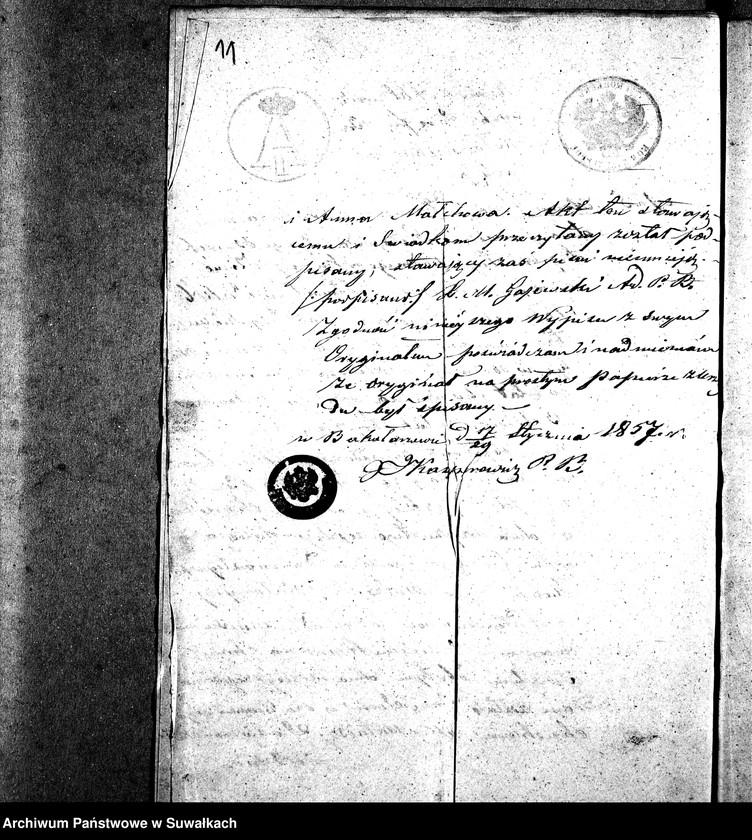 11
i Anna Malchowa. Akt ten stawają-
cemu i Świadkom przeczytany został pod-
pisany, stawający zaś pisać nieumieją.
/: podpisano :/ X. M. Gajewski Ad. P. B.
Zgodność niniejszego Wypisu z swym
Oryginałem poświadczam i nadmieniam
że oryginał na prostym papierze z Urzę
du był spisany. –
w Bakałarzewie d 17/29 Stycznia 1857. r.
X Kasprowicz P. B.
Archiwum Państwowe w Suwałkach